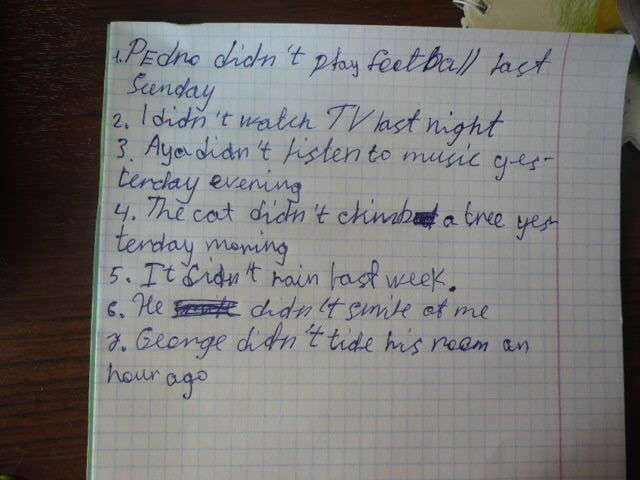 1. Pedro didn't play football last
Sunday
2. I didn't watch TV last night
3. Aya didn't listen to music yes-
terday evening
4. The cat didn't climb a tree yes-
terday morning
5. It didn't rain last week.
6. He didn't smile at me
7. George didn't tide his room an
hour ago